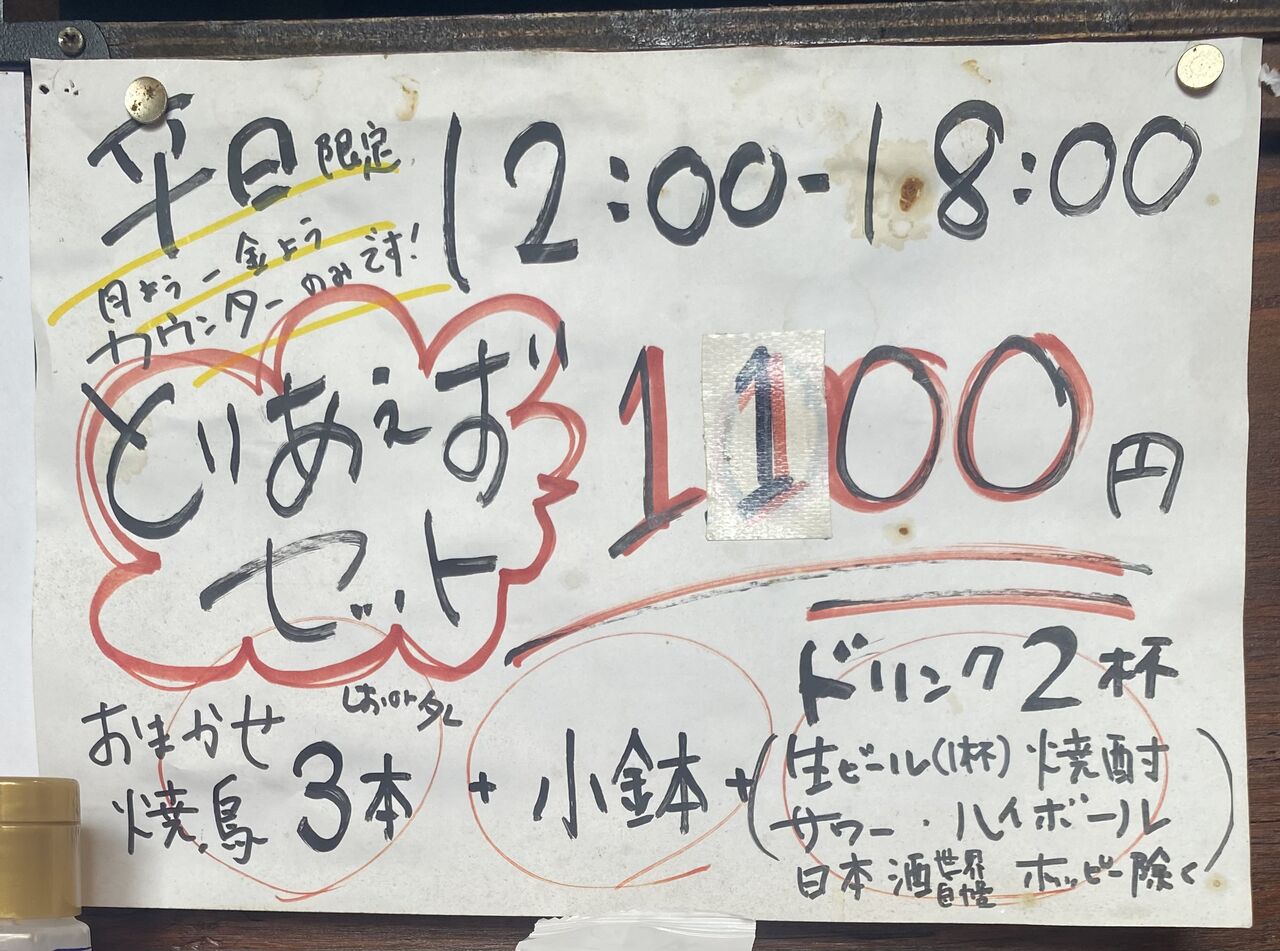 平日限定 12:00-18:00
月よう-金よう
カウンターのみです!
とりあえず
セット
1100円
おまかせ しおorタレ
焼鳥 3本 + 小鉢 +
ドリンク2杯
(生ビール(1杯) 焼酎
サワー・ハイボール
日本酒 ホッピー除く)